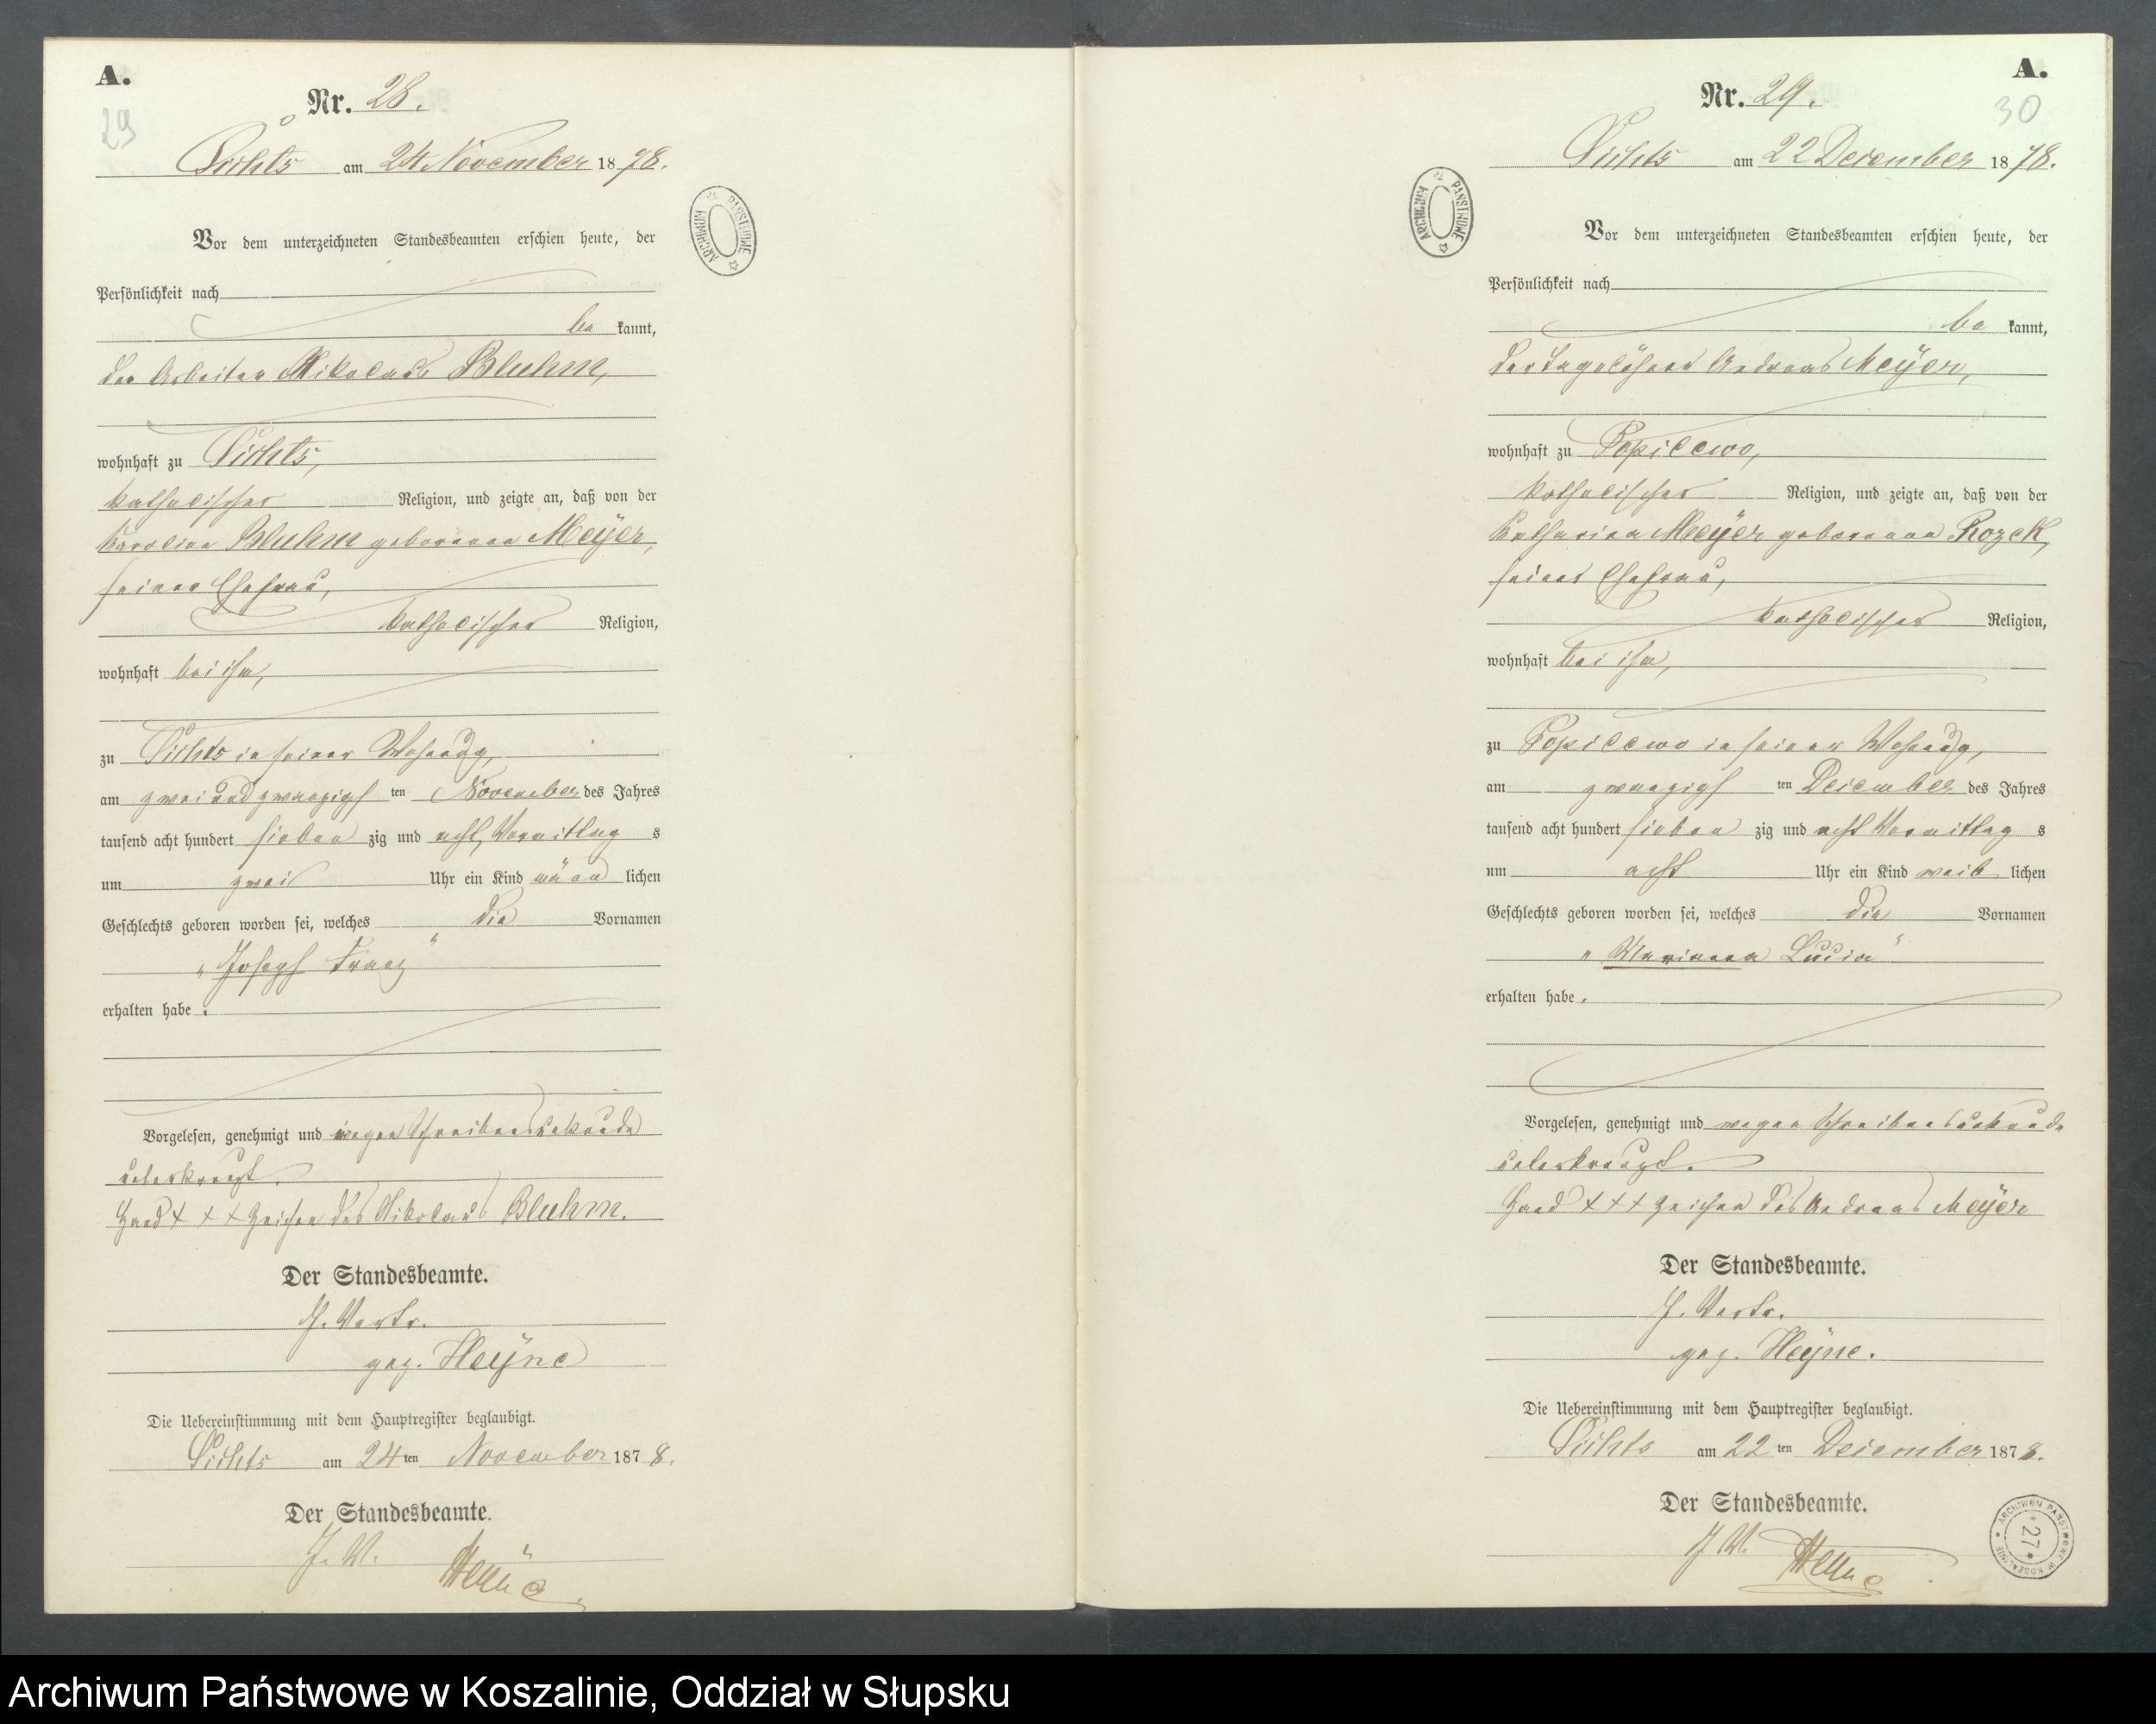 A.
29
Nr. 28.
Pichts am 24 November 1878.
Vor dem unterzeichneten Standesbeamten erschien heute, der
Persönlichkeit nach
be kannt,
der Arbeiter Nikolaus Bluhm,
wohnhaft zu Pichts,
katholischer Religion, und zeigte an, daß von der
Karoline Bluhm geborenen Meÿer,
seiner Ehefrau,
katholischer Religion,
wohnhaft bei ihm,
zu Pichts in seiner Wohnung,
am zwei und zwanzigsten November des Jahres
tausend acht hundert sieben zig und acht, Vormittag s
um zwei Uhr ein Kind männ lichen
Geschlechts geboren worden sei, welches die Vornamen
„Joseph Franz“
erhalten habe.
Vorgelesen, genehmigt und wegen Schreibensunkunde
unterkreuzt.
Hand + + + Zeichen des Nikolaus Bluhm.
Der Standesbeamte.
J. Vertr.
gez. Heÿne
Die Uebereinstimmung mit dem Hauptregister beglaubigt.
Pichts am 24ten November 1878.
Der Standesbeamte.
J. V. Heÿne
A.
30
Nr. 29.
Pichts am 22 December 1878.
Vor dem unterzeichneten Standesbeamten erschien heute, der
Persönlichkeit nach
be kannt,
der Tagelöhner Andreas Meÿer,
wohnhaft zu Popilewo,
katholischer Religion, und zeigte an, daß von der
Katharina Meÿer geborenen Rozek,
seiner Ehefrau,
katholischer Religion,
wohnhaft bei ihm,
zu Popilewo in seiner Wohnung,
am zwanzigsten December des Jahres
tausend acht hundert sieben zig und acht Vormittag s
um acht Uhr ein Kind weib lichen
Geschlechts geboren worden sei, welches die Vornamen
„Marianna Lucia“
erhalten habe.
Vorgelesen, genehmigt und wegen Schreibensunkunde
unterkreuzt.
Hand + + + Zeichen des Andreas Meÿer
Der Standesbeamte.
J. Vertr.
gez. Heÿne.
Die Uebereinstimmung mit dem Hauptregister beglaubigt.
Pichts am 22 ten December 1878.
Der Standesbeamte.
J. V. Heyne
ARCHIWUM PAŃSTWOWE
ARCHIWUM PAŃSTWOWE
ARCHIWUM PAŃSTWOWE W KOSZALINIE
*27*
Archiwum Państwowe w Koszalinie, Oddział w Słupsku